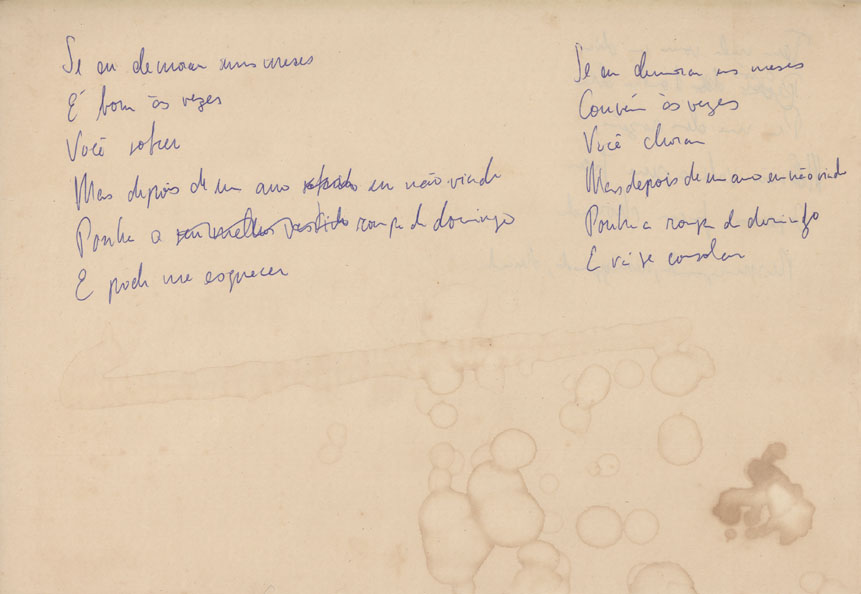 Se eu demorar uns meses
É bom às vezes
Você sofrer
Mas depois de um ano eu não vindo
Ponha a seu melhor vestido roupa de domingo
E pode me esquecer
Se eu demorar uns meses
Convém às vezes
Você chorar
Mas depois de um ano eu não vindo
Ponha a roupa de domingo
E vá se consolar